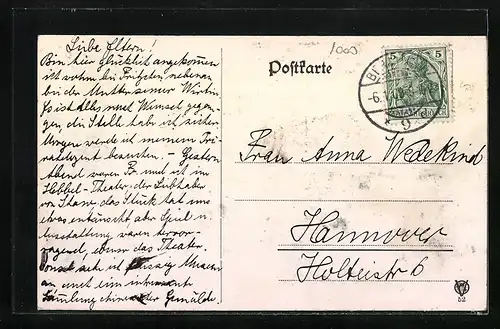 Liebe Eltern!
Bin hier glücklich angekommen
ist wohne bei Fritzchen nebenan
bei der Mutter seiner Wirtin
Es ist Alles nach Wunsch gegan-
gen, die Stelle habe ich sicher
Morgen werde ich meinem Pri-
vatdozent besuchen. - Gestern
Abend waren Fr. und ich im
Hebbel-Theater, der Liebhaber
von Shaw, das Stück hat uns
etwas enttäuscht aber Spiel u.
Ausstattung waren hervor-
ragend, ebenso das Theater.
Sonst sah ich
an und eine
Sammlung chinesischer Gemälde.
1000
Postkarte
5 5
-6.
9
Frau Anna Wedekind
Hannover
Holteistr 6
52